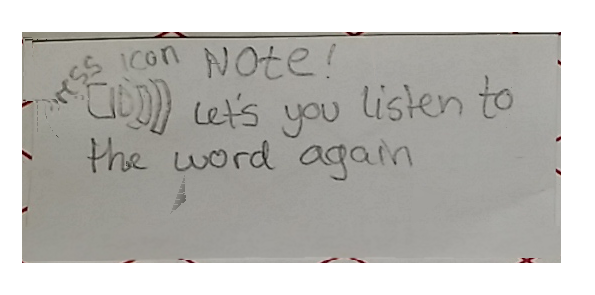 Press icon Note!
Let's you listen to
the word again